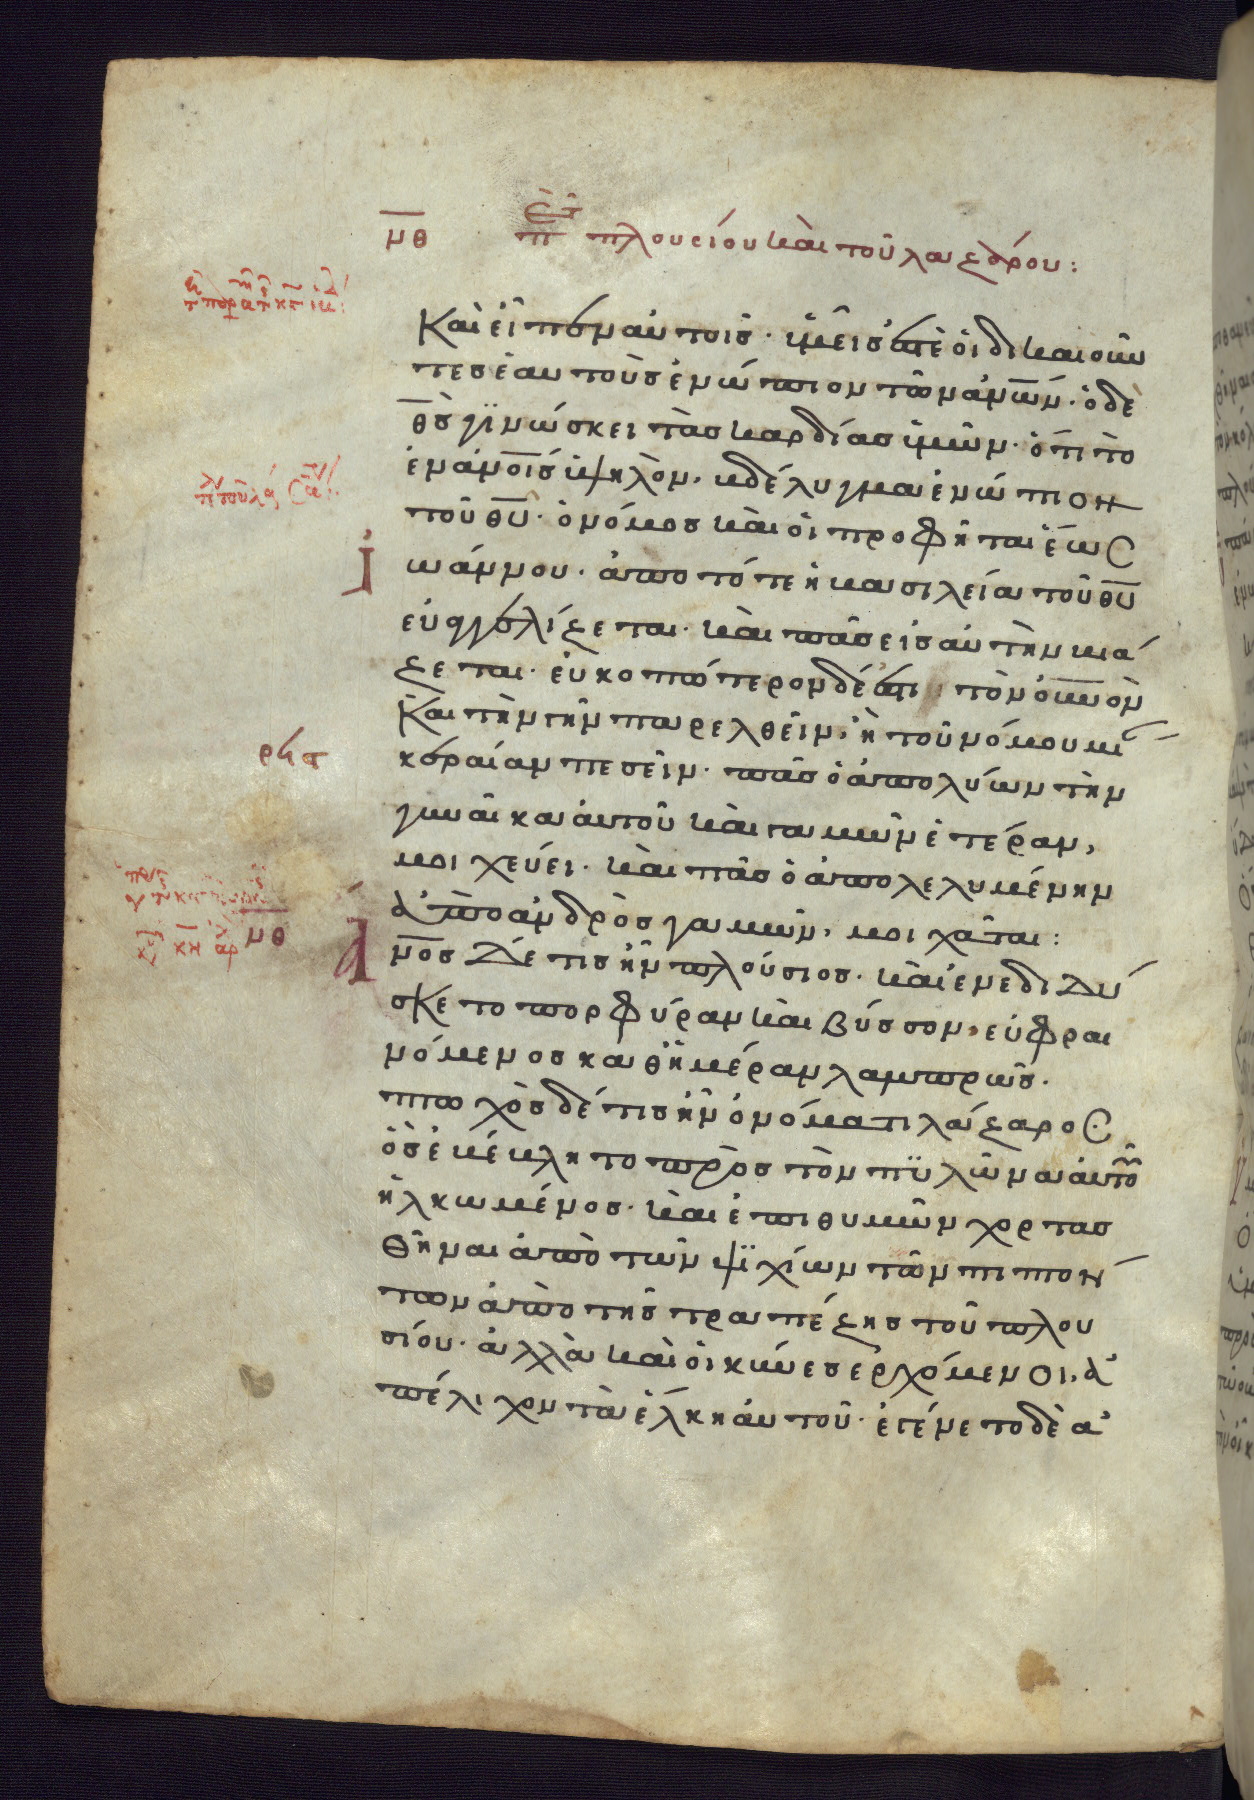 μθ πλουσίου καὶ τοῦ λαζάρου:
Καὶ εἶπεν αὐτοῖς· ὑμεῖς ἐστὲ οἱ δικαιοῦν
τες ἑαυτοὺς ἐνώπιον τῶν ἀν̅ω̅ν· ὁ δὲ
θ̅ς̅ γϊνώσκει τὰς καρδίας ὑμῶν· ὅτι τὸ
ἐν ἀν̅ο̅ις ὑψηλὸν, βδέλυγμα ἐνώπιον
τοῦ θ̅υ̅· ὁ νόμος καὶ οἱ προφῆται ἕως
Ἰωάννου· ἀπὸ τότε ἡ βασιλεία τοῦ θ̅υ̅
εὐαγγελίζεται· καὶ πᾶς εἰς αὐτὴν βιά
ζεται· εὐκοπώτερον δέ ἐστι τὸν οὐ̅νον
Και τὴν γῆν παρελθεῖν, ἢ τοῦ νόμου μί
κεραίαν πεσεῖν· πᾶς ὁ ἀπολύων τὴν
γυναῖκα αὐτοῦ καὶ γαμῶν ἑτέραν,
μοιχεύει· καὶ πᾶς ὁ ἀπολελυμένην
ἀπὸ ἀνδρὸς γαμῶν, μοιχᾶται:
μθ Ἄν̅ος δέ τις ἦν πλούσιος· καὶ ἐνεδιδύ
σκετο πορφύραν καὶ βύσσον, εὐφραι
νόμενος καθἡμέραν λαμπρῶς·
πτωχὸς δέ τις ἦν ὀνόματι λάζαρος
ὃς ἐβέβλητο πρὸς τὸν πϋλῶνα αὐτοῦ
ἡλκωμένος· καὶ ἐπιθυμῶν χορτασ
θῆναι ἀπὸ τῶν ψϊχίων τῶν πιπτόν
των ἀπὸ τῆς τραπέζης τοῦ πλου
σίου· ἀλλὰ καὶ οἱ κύνες ἐρχόμενοι, ἀ
πέλιχον τὰ ἕλκη αὐτοῦ· ἐγένετο δὲ ἀ